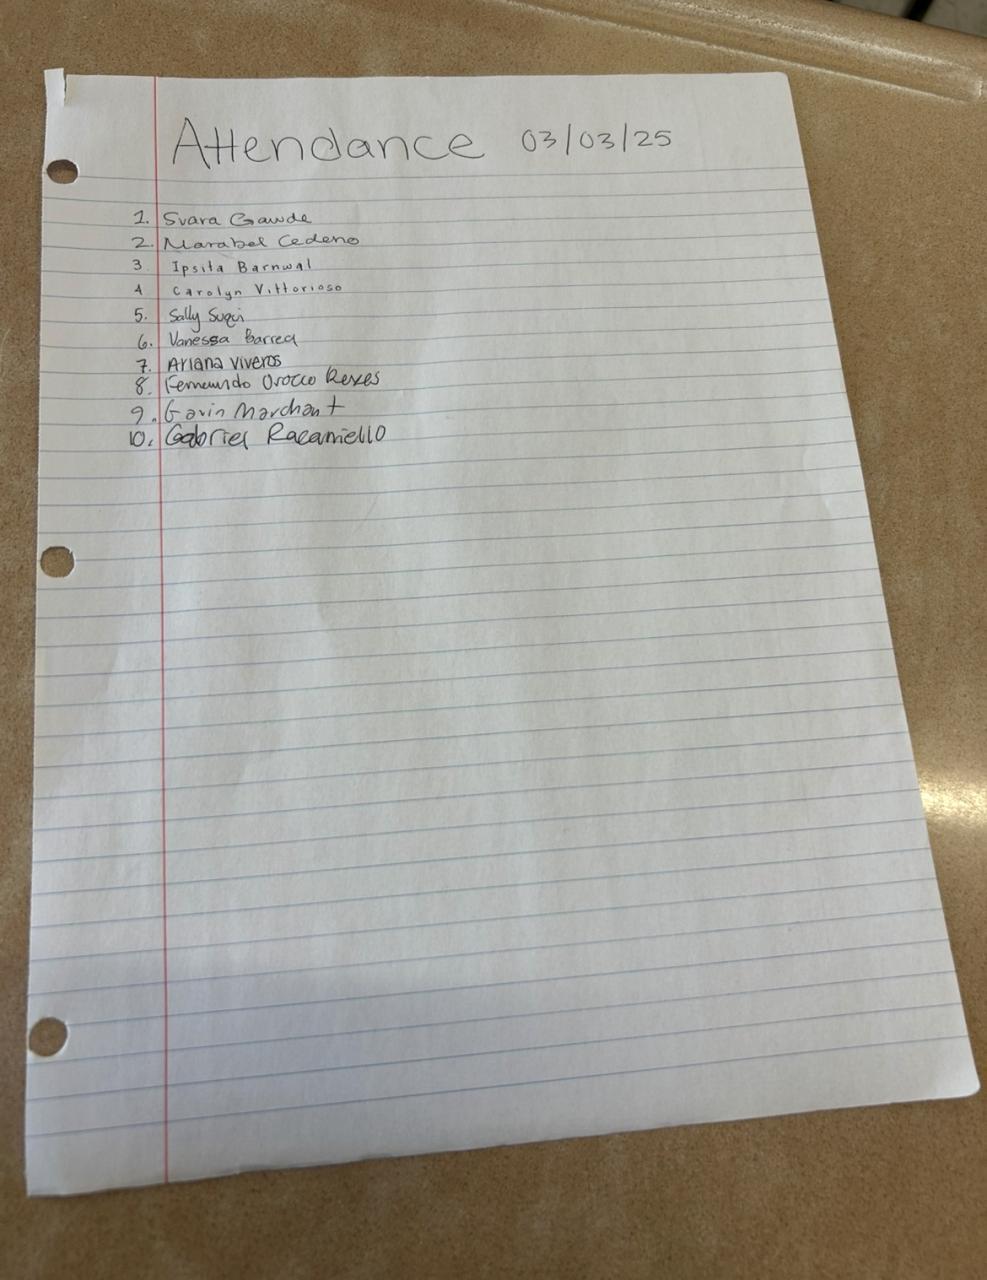 Attendance 03/03/25
1. Svara Gawde
2. Marabel Cedeno
3. Ipsita Barnwal
4 Carolyn Vittorioso
5. Sally Suqi
6. Vanessa Barrea
7. Ariana Viveros
8. Fernando Orocco Reyes
9. Gavin Marchant
10. Gabriel Racaniello